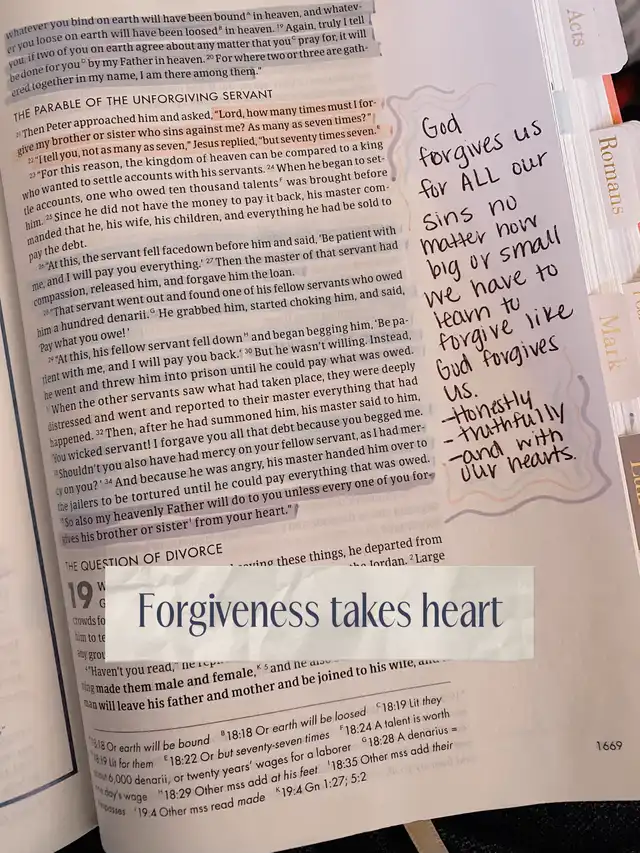 whatever you bind on earth will have been boundᴬ in heaven, and whatev-
er you loose on earth will have been loosedᴮ in heaven. ¹⁹ Again, truly I tell
you, if two of you on earth agree about any matter that youᶜ pray for, it will
be done for youᴰ by my Father in heaven. ²⁰ For where two or three are gath-
ered together in my name, I am there among them."
THE PARABLE OF THE UNFORGIVING SERVANT
²¹ Then Peter approached him and asked, "Lord, how many times must I for-
give my brother or sister who sins against me? As many as seven times?"
²² "I tell you, not as many as seven," Jesus replied, "but seventy times seven.ᴱ
²³ "For this reason, the kingdom of heaven can be compared to a king
who wanted to settle accounts with his servants. ²⁴ When he began to set-
tle accounts, one who owed ten thousand talentsᶠ was brought before
him. ²⁵ Since he did not have the money to pay it back, his master com-
manded that he, his wife, his children, and everything he had be sold to
pay the debt.
²⁶ "At this, the servant fell facedown before him and said, 'Be patient with
me, and I will pay you everything.' ²⁷ Then the master of that servant had
compassion, released him, and forgave him the loan.
²⁸ "That servant went out and found one of his fellow servants who owed
him a hundred denarii.ᴳ He grabbed him, started choking him, and said,
'Pay what you owe!'
²⁹ "At this, his fellow servant fell downᴴ and began begging him, 'Be pa-
tient with me, and I will pay you back.' ³⁰ But he wasn't willing. Instead,
he went and threw him into prison until he could pay what was owed.
When the other servants saw what had taken place, they were deeply
distressed and went and reported to their master everything that had
happened. ³² Then, after he had summoned him, his master said to him,
'You wicked servant! I forgave you all that debt because you begged me.
Shouldn't you also have had mercy on your fellow servant, as I had mer-
cy on you?' ³⁴ And because he was angry, his master handed him over to
the jailers to be tortured until he could pay everything that was owed.
"So also my heavenly Father will do to you unless every one of you for-
gives his brother or sisterᴵ from your heart."
THE QUESTION OF DIVORCE
19
these things, he departed from
Jordan. ² Large
crowds
him to
"Haven't you read," he
made them male and female,ᴷ ⁵ and he
man will leave his father and mother and be joined to his wife,
18:18 Or earth will be bound ᴮ18:18 Or earth will be loosed ᶜ18:19 Lit they
18:19 Lit for them ᴱ18:22 Or but seventy-seven times ᶠ18:24 A talent is worth
6,000 denarii, or twenty years' wages for a laborer ᴳ18:28 A denarius =
day's wage ᴴ18:29 Other mss add at his feet ᴵ18:35 Other mss add their
ᴶ19:4 Other mss read made ᴷ19:4 Gn 1:27; 5:2
1669
God
forgives us
for ALL our
sins no
matter how
big or small
we have to
learn to
forgive like
God forgives
us.
-Honestly
-truthfully
-and with
our hearts.
Acts
Romans
Mark
Forgiveness takes heart